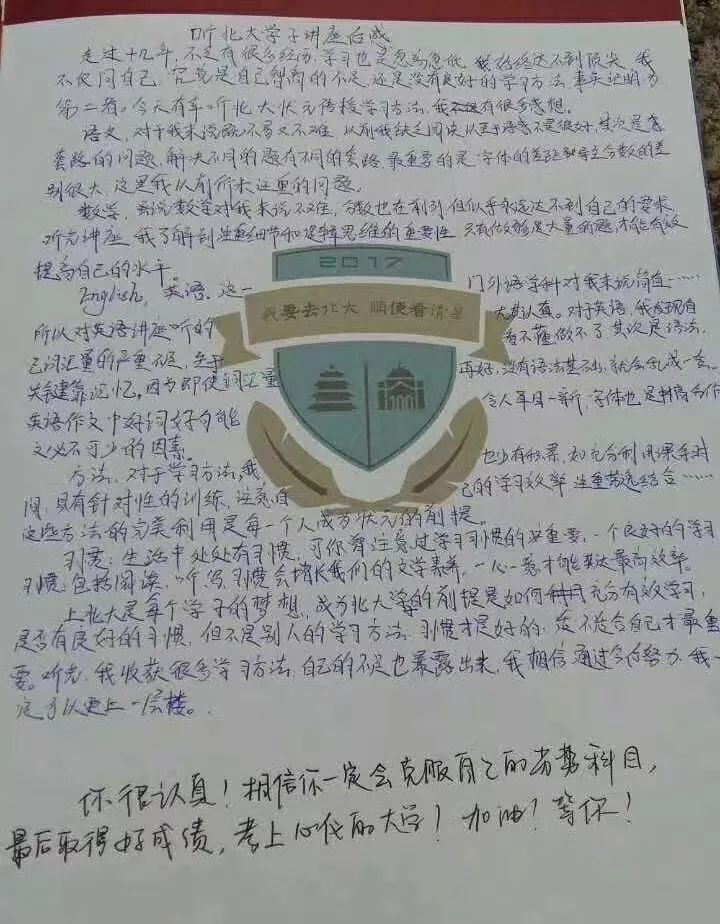 听北大学子讲座后感
走过十几年,不乏有很多经历,学习也是忽高忽低,我始终达不到顶尖,我
不仅问自己,究竟是自己智商的不足,还是没有良好的学习方法,事实证明为
第二者。今天有幸听北大状元传授学习方法,我有很多感想。
语文,对于我来说既不易又不难,以前我缺乏阅读以至于语感不是很好,其次是答
套路的问题,解决不同的题有不同的套路,最重要的是字体的差距导致分数的差
别很大,这是我从前所未注重的问题。
数学,虽说数学对我来说不难,分数也在前列但似乎永远达不到自己的要求,
听完讲座,我了解到注重细节和逻辑思维的重要性,只有做够足大量的题,才能有效
提高自己的水平。
English,英语,这一 门外语学科对我来说简直……
2017
我要去北大 顺便看清华
所以对英语讲座听的 尤其认真。对于英语,我发现自
己词汇量的严重不足,至于 看不懂做不了其次是语法,
关键靠记忆,因为即使词汇量 再好,没有语法基础,就会乱成一套。
英语作文中好词好句能 令人耳目一新,字体也是提高作
文必不可少的因素。
方法,对于学习方法,我 也少有积累,如充分利用课余时
间,具有针对性的训练,注意自 己的学习效率,注重劳逸结合……
这些方法的完美利用是每一个人成为状元的前提。
习惯:生活中处处有习惯,可你曾注意过学习习惯的重要,一个良好的学习
习惯:包括阅读,听写,习惯会增长我们的文学素养,一心一意才能达最高效率。
上北大是每个学子的梦想,成为北大学的前提是如何充分有效学习,
是否有良好的习惯,但不是别人的学习方法,习惯才是好的,适不适合自己才最重
要。听完,我收获很多学习方法,自己的不足也暴露出来,我相信通过今后努力,我一
定可以更上一层楼。
你很认真!相信你一定会克服自己的劣势科目,
最后取得好成绩,考上心仪的大学!加油!等你!